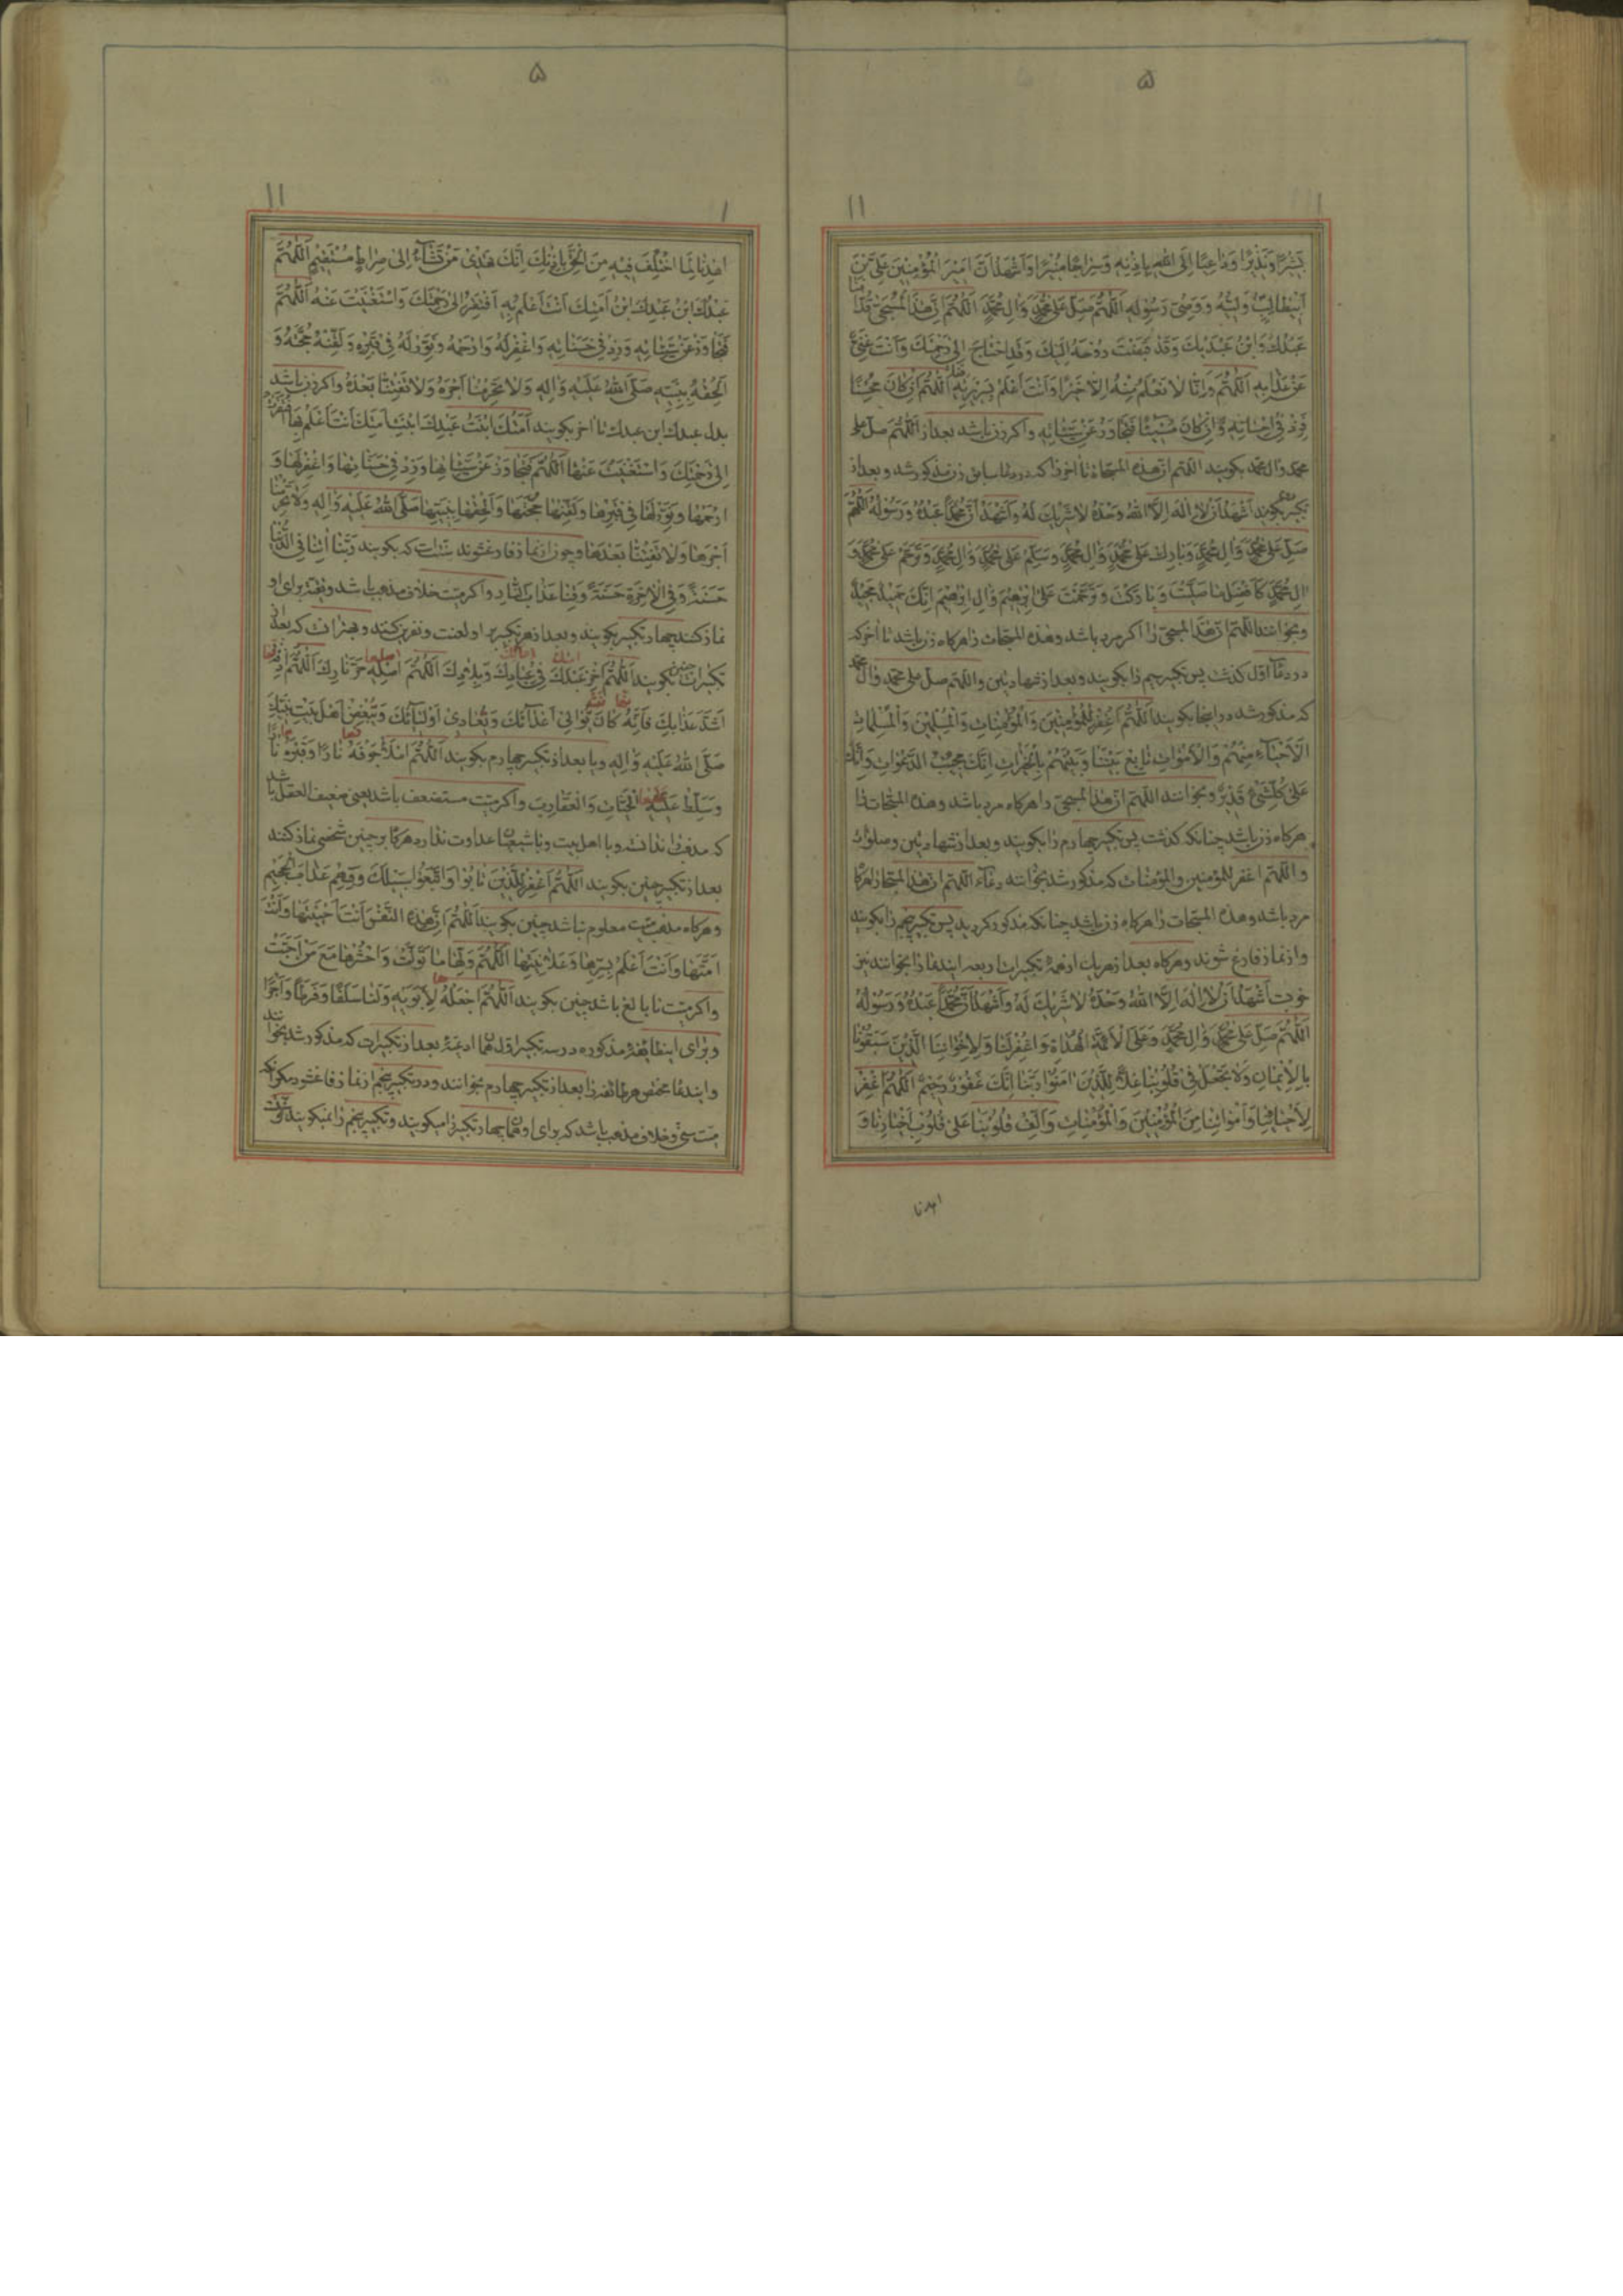 ۵
۱۱
بَشِیرًا وَنَذِیرًا وَدَاعِیًا اِلَی اللّٰهِ بِاِذْنِهِ وَسِرَاجًا مُنِیرًا وَاَشْهَدُ اَنَّ اَمِیرَ الْمُؤْمِنِینَ عَلِیَّ بْنَ
اَبِیطَالِبٍ وَلِیُّهُ وَوَصِیُّ رَسُولِهِ اَللّٰهُمَّ صَلِّ عَلٰی مُحَمَّدٍ وَاٰلِ مُحَمَّدٍ اَللّٰهُمَّ اِنَّ هٰذَا الْمُسَجّٰی قُدَّامَنَا
عَبْدُكَ وَابْنُ عَبْدِكَ وَقَدْ قَبَضْتَ رُوحَهُ اِلَیْكَ وَقَدِ احْتَاجَ اِلٰی رَحْمَتِكَ وَاَنْتَ غَنِیٌّ
عَنْ عَذَابِهِ اَللّٰهُمَّ وَاِنَّا لَا نَعْلَمُ مِنْهُ اِلَّا خَیْرًا وَاَنْتَ اَعْلَمُ بِسَرِیرَتِهِ اَللّٰهُمَّ اِنْ كَانَ مُحْسِنًا
فَزِدْ فِی اِحْسَانِهِ وَاِنْ كَانَ مُسِیئًا فَتَجَاوَزْ عَنْ سَیِّئَاتِهِ واکر زن باشد بعد از اَللّٰهُمَّ صل علی
محمد وال محمد بکویند اللّهم ان هذه المسجاة تا اخر
تکبیر بکویند اَشْهَدُ اَنْ لَا اِلٰهَ اِلَّا اللّٰهُ وَحْدَهُ لَا شَرِیكَ لَهُ وَاَشْهَدُ اَنَّ مُحَمَّدًا عَبْدُهُ وَرَسُولُهُ اَللّٰهُمَّ
صَلِّ عَلٰی مُحَمَّدٍ وَاٰلِ مُحَمَّدٍ وَبَارِكْ عَلٰی مُحَمَّدٍ وَاٰلِ مُحَمَّدٍ وَسَلِّمْ عَلٰی مُحَمَّدٍ وَاٰلِ مُحَمَّدٍ وَتَرَحَّمْ عَلٰی مُحَمَّدٍ وَ
اٰلِ مُحَمَّدٍ كَاَفْضَلِ مَا صَلَّیْتَ وَبَارَكْتَ وَتَرَحَّمْتَ عَلٰی اِبْرٰهِیمَ وَاٰلِ اِبْرٰهِیمَ اِنَّكَ حَمِیدٌ مَجِیدٌ
وبخوانند اللّهم ان هذا المسجی را اکر مرد باشد وهذه المسجات را هرکاه زن باشد تا اخر که
در دعاء اول کذشت پس تکبیر سیم را بکویند وبعد از شهادتین واللّهم صل علی محمد وال محمد
که مذکور شد در اینجا بکویند اَللّٰهُمَّ اغْفِرْ لِلْمُؤْمِنِینَ وَالْمُؤْمِنَاتِ وَالْمُسْلِمِینَ وَالْمُسْلِمَاتِ
اَلْاَحْیَاءِ مِنْهُمْ وَالْاَمْوَاتِ تَابِعْ بَیْنَنَا وَبَیْنَهُمْ بِالْخَیْرَاتِ اِنَّكَ مُجِیبُ الدَّعَوَاتِ وَاِنَّكَ
عَلٰی كُلِّ شَیْءٍ قَدِیرٌ وبخوانند اللّهم ان هذا المسجی را هرکاه مرد باشد وهذه المسجات را
هرکاه زن باشد چنانکه کذشت پس تکبیر چهارم را بکویند وبعد از شهادتین وصلوات
واللّهم اغفر للمؤمنین والمؤمنات که مذکور شد بخوانند دعاء اللّهم ان هذا المسجا را هرکا
مرد باشد وهذه المسجات را هرکاه زن باشد چنانکه مذکور کردید پس تکبیر پنجم را بکویند
واز نماز فارغ شوند وهرکاه بعد از هریك از همهٔ تکبیرات اربعه ایندعا را بخوانند نیز
خوبست اَشْهَدُ اَنْ لَا اِلٰهَ اِلَّا اللّٰهُ وَحْدَهُ لَا شَرِیكَ لَهُ وَاَشْهَدُ اَنَّ مُحَمَّدًا عَبْدُهُ وَرَسُولُهُ
اَللّٰهُمَّ صَلِّ عَلٰی مُحَمَّدٍ وَاٰلِ مُحَمَّدٍ وَعَلٰی اَئِمَّةِ الْهُدَاةِ وَاغْفِرْ لَنَا وَلِاِخْوَانِنَا الَّذِینَ سَبَقُونَا
بِالْاِیمَانِ وَلَا تَجْعَلْ فِی قُلُوبِنَا غِلًّا لِلَّذِینَ اٰمَنُوا رَبَّنَا اِنَّكَ غَفُورٌ رَحِیمٌ اَللّٰهُمَّ اغْفِرْ
لِاَحْیَائِنَا وَاَمْوَاتِنَا مِنَ الْمُؤْمِنِینَ وَالْمُؤْمِنَاتِ وَاَلِّفْ قُلُوبَنَا عَلٰی قُلُوبِ اَخْیَارِنَا وَ
اهدنا
۵
۱۱
۱
اهْدِنَا لِمَا اخْتُلِفَ فِیهِ مِنَ الْحَقِّ بِاِذْنِكَ اِنَّكَ تَهْدِی مَنْ تَشَاءُ اِلٰی صِرَاطٍ مُسْتَقِیمٍ اَللّٰهُمَّ
عَبْدُكَ ابْنُ عَبْدِكَ ابْنُ اَمَتِكَ اَنْتَ اَعْلَمُ بِهِ اَفْتَقَرَ اِلٰی رَحْمَتِكَ وَاسْتَغْنَیْتَ عَنْهُ اَللّٰهُمَّ
فَتَجَاوَزْ عَنْ سَیِّئَاتِهِ وَزِدْ فِی حَسَنَاتِهِ وَاغْفِرْ لَهُ وَارْحَمْهُ وَنَوِّرْ لَهُ فِی قَبْرِهِ وَلَقِّنْهُ حُجَّتَهُ وَ
اَلْحِقْهُ بِنَبِیِّهِ صَلَّی اللّٰهُ عَلَیْهِ وَاٰلِهِ وَلَا تَحْرِمْنَا اَجْرَهُ وَلَا تَفْتِنَّا بَعْدَهُ واکر زن باشد
بدل عبدك ابن عبدك تا اخر بکویند اَمَتُكَ ابْنَتُ عَبْدِكَ ابْنَتُ اَمَتِكَ اَنْتَ اَعْلَمُ بِهَا افْتَقَرَتْ
اِلٰی رَحْمَتِكَ وَاسْتَغْنَیْتَ عَنْهَا اَللّٰهُمَّ فَتَجَاوَزْ عَنْ سَیِّئَاتِهَا وَزِدْ فِی حَسَنَاتِهَا وَاغْفِرْ لَهَا وَ
ارْحَمْهَا وَنَوِّرْ لَهَا فِی قَبْرِهَا وَلَقِّنْهَا حُجَّتَهَا وَاَلْحِقْهَا بِنَبِیِّهَا صَلَّی اللّٰهُ عَلَیْهِ وَاٰلِهِ وَلَا تَحْرِمْنَا
اَجْرَهَا وَلَا تَفْتِنَّا بَعْدَهَا وچون از نماز فارغ شوند سنت است که بکویند رَبَّنَا اٰتِنَا فِی الدُّنْیَا
حَسَنَةً وَفِی الْاٰخِرَةِ حَسَنَةً وَقِنَا عَذَابَ النَّارِ واکر میت خلاف مذهب باشد وتقیة برای او
نماز کنند چهار تکبیر بکویند وبعد از هر تکبیر بر او لعنت ونفرین کنند وبهتر انست که بعد از
تکبیرات چنین بکویند اَللّٰهُمَّ اخْزِ عَبْدَكَ فِی عِبَادِكَ وَبِلَادِكَ اَللّٰهُمَّ اَصْلِهِ حَرَّ نَارِكَ اَللّٰهُمَّ اَذِقْهُ
اَشَدَّ عَذَابِكَ فَاِنَّهُ كَانَ یُوَالِی اَعْدَائَكَ وَیُعَادِی اَوْلِیَائَكَ وَیُبْغِضُ اَهْلَ بَیْتِ نَبِیِّكَ
صَلَّی اللّٰهُ عَلَیْهِ وَاٰلِهِ ویا بعد از تکبیر چهارم بکویند اَللّٰهُمَّ امْلَأْ جَوْفَهُ نَارًا وَقَبْرَهُ نَارًا
وَسَلِّطْ عَلَیْهِ الْحَیَّاتِ وَالْعَقَارِبَ واکر میت مستضعف باشد یعنی ضعیف العقل باشد
که مذهب نداند وبا اهل بیت وبا شیعیان عداوت ندارد هرکاه بر چنین شخصی نماز کنند
بعد از تکبیر چنین بکویند اَللّٰهُمَّ اغْفِرْ لِلَّذِینَ تَابُوا وَاتَّبَعُوا سَبِیلَكَ وَقِهِمْ عَذَابَ الْجَحِیمِ
وهرکاه مذهب میت معلوم نباشد چنین بکویند اَللّٰهُمَّ اِنَّ هٰذِهِ النَّفْسَ اَنْتَ اَحْیَیْتَهَا وَاَنْتَ
اَمَتَّهَا وَاَنْتَ اَعْلَمُ بِسِرِّهَا وَعَلَانِیَتِهَا اَللّٰهُمَّ وَلِّهَا مَا تَوَلَّتْ وَاحْشُرْهَا مَعَ مَنْ اَحَبَّتْ
واکر میت نابالغ باشد چنین بکویند اَللّٰهُمَّ اجْعَلْهُ لِاَبَوَیْهِ وَلَنَا سَلَفًا وَفَرَطًا وَاَجْرًا
وبرای اینطایفهٔ مذکوره در سه تکبیر اول همان ادعیهٔ بعد از تکبیرات که مذکور شد بخوانند
وایندعا مخصوص هر طائفه را بعد از تکبیر چهارم بخوانند ودر تکبیر پنجم از نماز فارغ شود مکر انکه
میت سنی وخلاف مذهب باشد که برای او همان چهار تکبیر را میکویند وتکبیر پنجم را نمیکویند